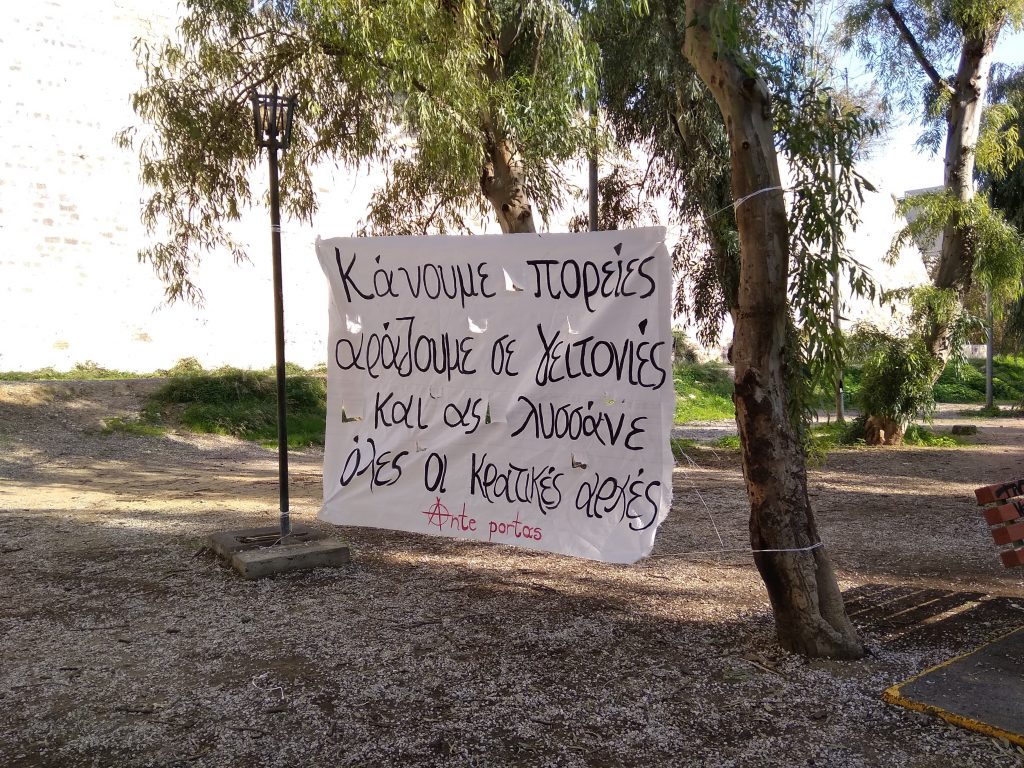 Κάνουμε πορείες
αράζουμε σε γειτονιές
και ας λυσσάνε
όλες οι κρατικές αρχές
Ante portas